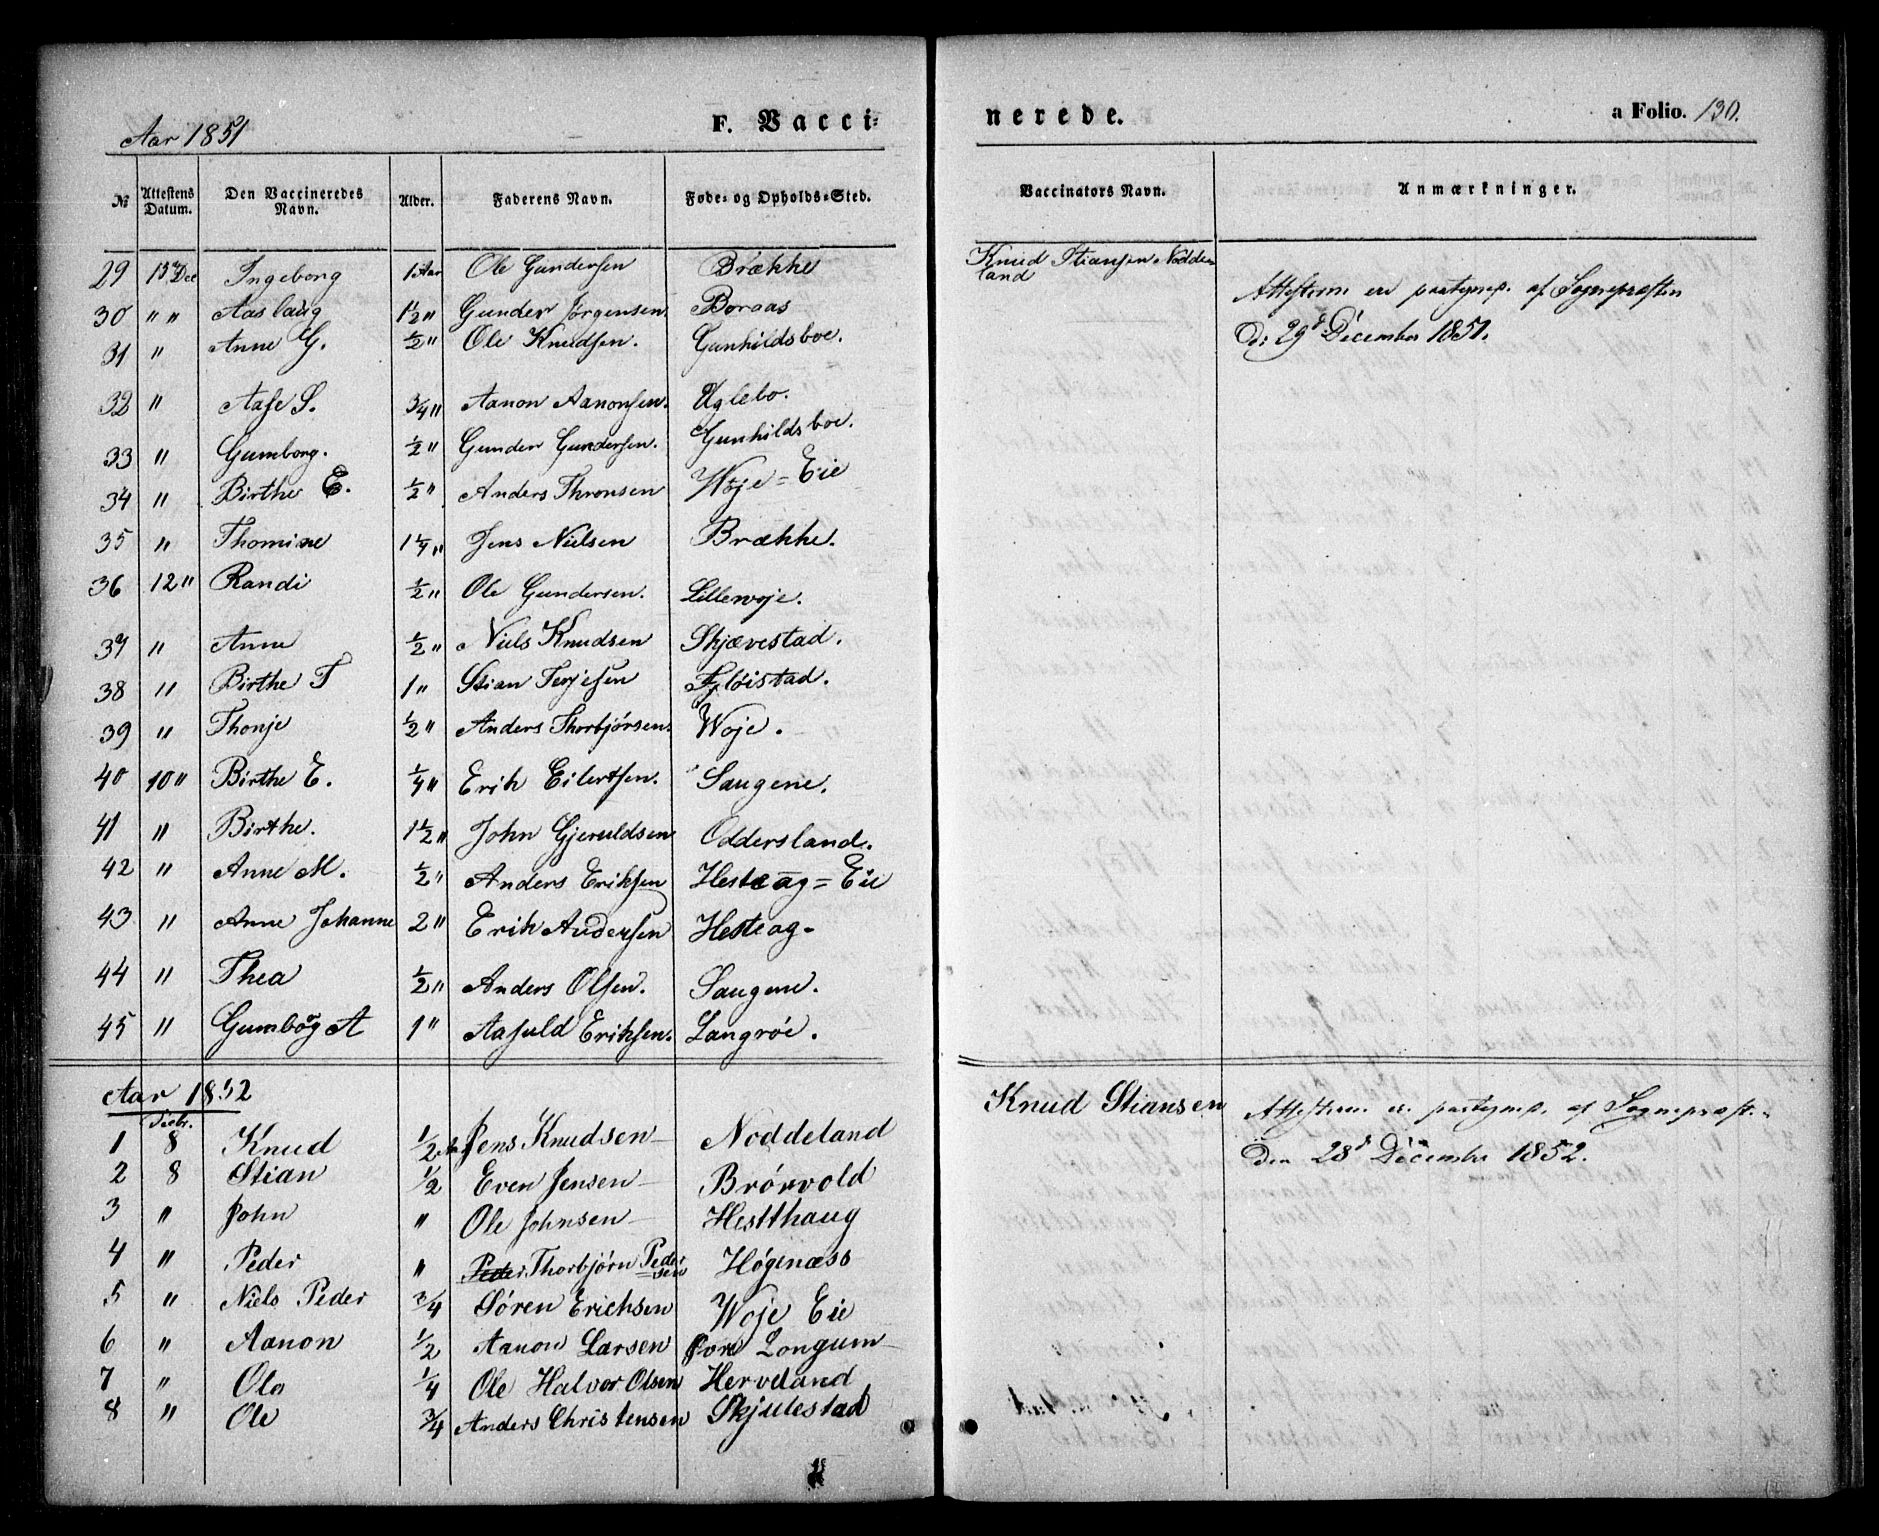 Aar 1851 F. Vacci= nerede. a Folio. 130.
№ Attestens Datum. Den Vaccineredes Navn. Alder. Faderens Navn. Føde- og Opholds-Sted. Vaccinators Navn. Anmærkninger.
29 13 Dec Ingeborg 1 Aar Ole Gundersen Brække Knud Stiansen Nodde
land
30 " " Aaslaug 1½ " Gunder Jørgensen Boraas
31 " Anne G. ½ " Ole Knudsen. Gunhildsboe.
Attesterne ere paategnep. af Sognepræsten
D. 29d December 1851.
32 " Aase S. ¾ " Aanon Aanonsen. Uglebo.
33 " Gumborg. ½ " Gunder Gundersen. Gunhildsboe.
34 " Birthe E. ½ " Anders Thronsen Woje = Eie
35 " Thomine 1¼ " Jens Nielsen Brække.
36 12 " Randi ½ " Ole Gundersen. Lillewoje.
37 " Anne ½ " Niels Knudsen Skjævestad.
38 " Birthe T 1 " Stian Terjesen Fløistad.
39 " Thonje ½ " Anders Thorbjørsen. Woje.
40 10 " Birthe E. ¼ " Erik Eilertsen. Saugene.
41 " Birthe. 1½ " John Gjeruldsen Oddersland.
42 " Anne M. ½ " Anders Eriksen Hesteag = Eie
43 " Anne Johanne 2 " Erik Andersen Hesteag.
44 " Thea ½ " Anders Olsen. Saugene.
45 " Gumborg A 1 " Aasuld Eriksen. Langrøe.
Aar 1852
1 8 Knud ½ Jens Knudsen Noddeland Knud Stiansen
Attesterne ere paategnep. af Sognepræst.
Den 28d December 1852.
2 8 Stian ½ Even Jensen Brørvold
3 " John " Ole Johnsen Hestthaug
4 " Peder " Peder Thorbjørn Peder
sen Høgenæss
5 " Niels Peder ¾ Søren Erichsen Woje Eie
6 " Aanon ½ Aanon Larsen Øvre Longum
7 " Ola ¼ Ole Halvor Olsen Herveland
8 " Ole ¾ Anders Christensen Skjulestad